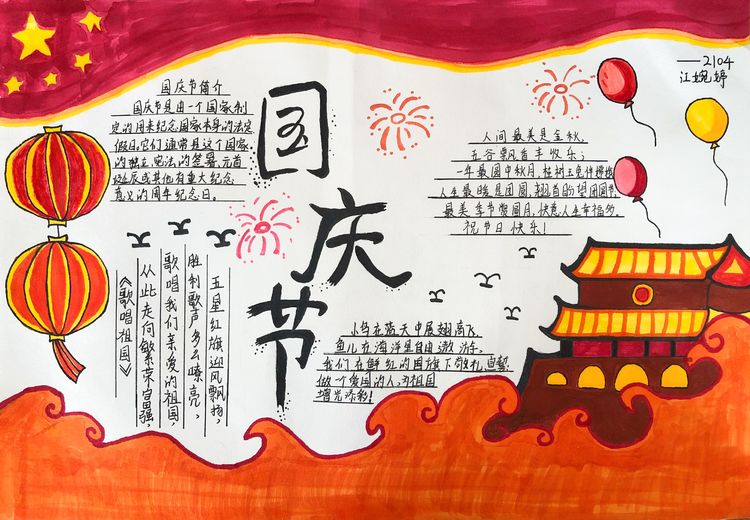 国庆节简介
国庆节是由一个国家制
定的用来纪念国家本身的法定
假日。它们通常是这个国家
的独立、宪法的签署、元首
诞辰或其他有重大纪念
意义的周年纪念日。
国庆节
——2104
江婉婷
人间最美是金秋,
五谷飘香丰收乐;
一年最圆中秋月,桂树玉兔伴嫦娥
人生最暖是团圆,翘首盼望团圆节
最美季节赏圆月,快意人生幸福多。
祝节日快乐!
五星红旗迎风飘扬,
胜利歌声多么嘹亮,
歌唱我们亲爱的祖国,
从此走向繁荣富强,
《歌唱祖国》
小鸟在蓝天中展翅高飞,
鱼儿在海洋里自由遨游。
我们在鲜红的国旗下敬礼,宣誓:
做一个爱国的人,为祖国
增光添彩!